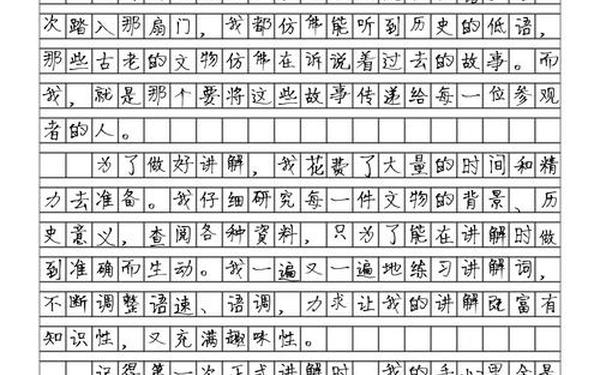 次踏入那扇门，我都仿佛能听到历史的低语，
那些古老的文物仿佛在诉说着过去的故事。而
我，就是那个要将这些故事传递给每一位参观
者的人。
为了做好讲解，我花费了大量的时间和精
力去准备。我仔细研究每一件文物的背景、历
史意义，查阅各种資料，只为了能在讲解时做
到准确而生动。我一遍又一遍地练习讲解词，
不断调整语速、语调，力求让我的讲解既富有
知识性，又充满趣味性。
记得第一次正式讲解时，我的手心里全是